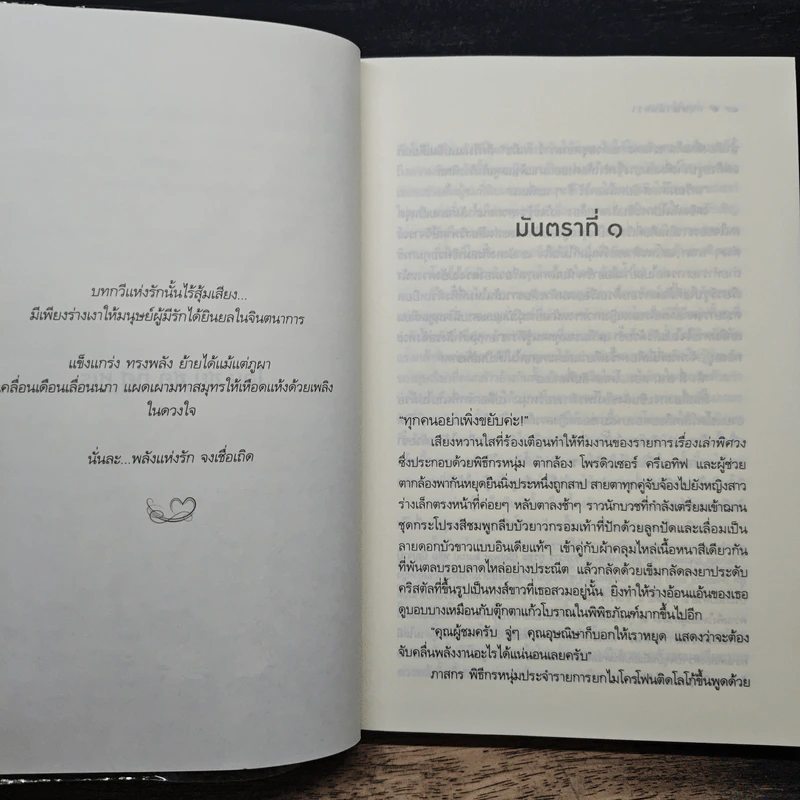 บทกวีแห่งรักนั้นไร้สุ้มเสียง...
มีเพียงร่างเงาให้มนุษย์ผู้มีรักได้ยินยลในจินตนาการ
แข็งแกร่ง ทรงพลัง ย้ายได้แม้แต่ภูผา
คลื่อนเดือนเลื่อนนภา แผดเผามหาสมุทรให้เหือดแห้งด้วยเพลิง
ในดวงใจ
นั่นละ...พลังแห่งรัก จงเชื่อเถิด
มันตราที่ ๑
"ทุกคนอย่าเพิ่งขยับค่ะ!"
เสียงหวานใสที่ร้องเตือนทำให้ทีมงานของรายการเรื่องเล่าพิศวง
ซึ่งประกอบด้วยพิธีกรหนุ่ม ตากล้อง โพรดิวเซอร์ ครีเอทิฟ และผู้ช่วย
ตากล้องพากันหยุดยืนนิ่งประหนึ่งถูกสาป สายตาทุกคู่จับจ้องไปยังหญิงสาว
ร่างเล็กตรงหน้าที่ค่อยๆ หลับตาลงช้าๆ ราวนักบวชที่กำลังเตรียมเข้าฌาน
ชุดกระโปรงสีชมพูกลีบบัวยาวกรอมเท้าที่ปักด้วยลูกปัดและเลื่อมเป็น
ลายดอกบัวขาวแบบอินเดียแท้ๆ เข้าคู่กับผ้าคลุมไหล่เนื้อหนาสีเดียวกัน
ที่พันตลบรอบลาดไหล่อย่างประณีต แล้วกลัดด้วยเข็มกลัดลงยาประดับ
คริสตัลที่ขึ้นรูปเป็นหงส์ขาวที่เธอสวมอยู่นั้น ยิ่งทำให้ร่างอ้อนแอ้นของเธอ
ดูบอบบางเหมือนกับตุ๊กตาแก้วโบราณในพิพิธภัณฑ์มากขึ้นไปอีก
"คุณผู้ชมครับ จู่ๆ คุณอุษณิษาก็บอกให้เราหยุด แสดงว่าจะต้อง
จับคลื่นพลังงานอะไรได้แน่นอนเลยครับ"
ภาสกร พิธีกรหนุ่มประจำรายการยกไมโครโฟนติดโลโก้ขึ้นพูดด้วย